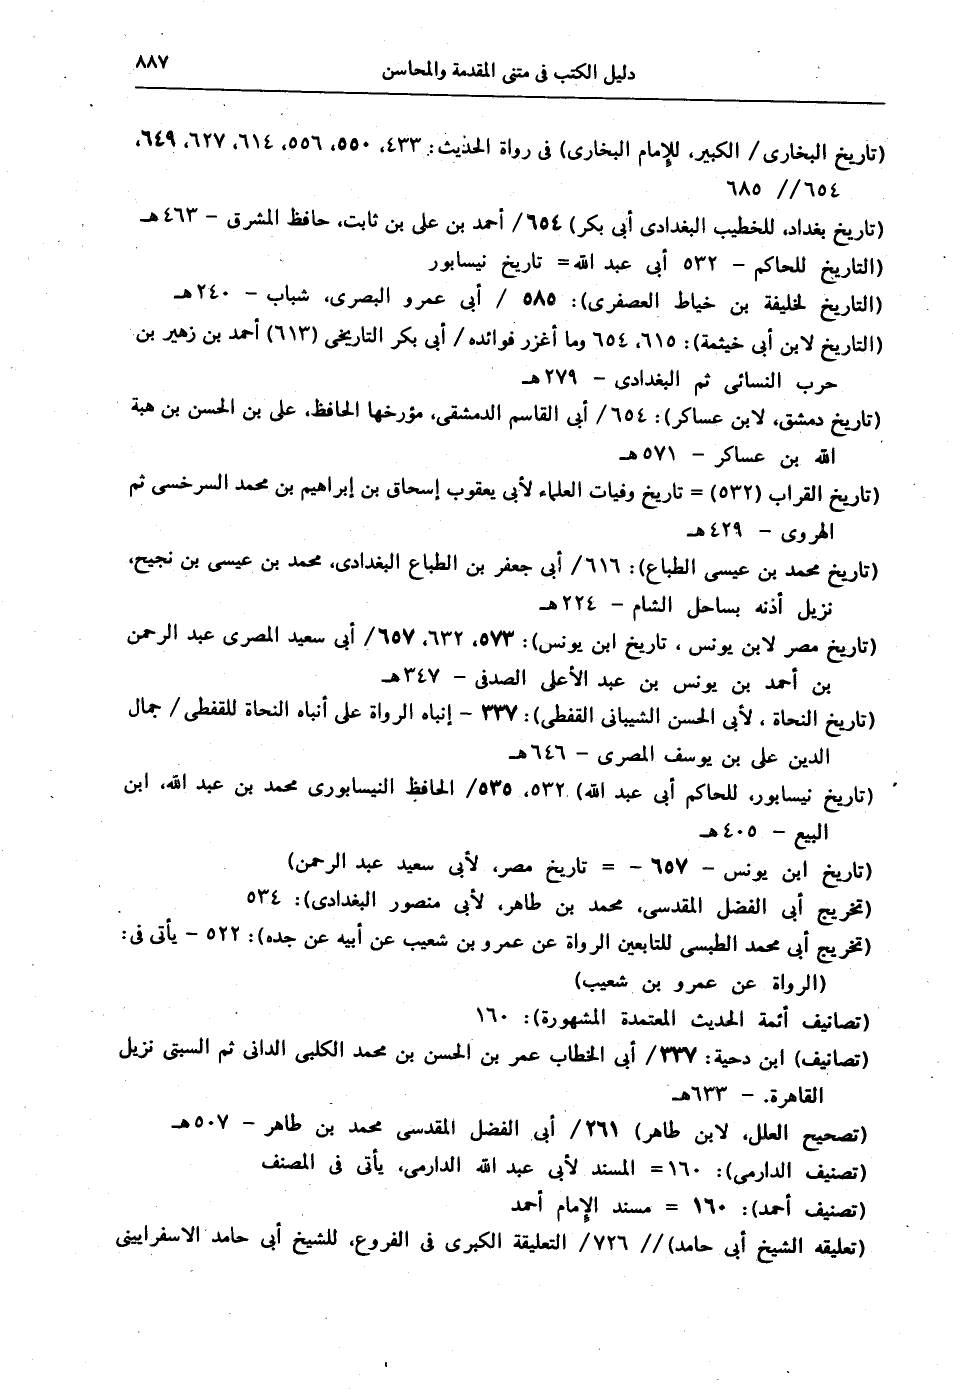 دليل الكتب فى متنى المقدمة والمحاسن ٨٨٧
(تاريخ البخارى/ الكبير، للإمام البخارى) فى رواة الحديث: ٤٣٣، ٥٥٠، ٥٥٦، ٦١٤، ٦٢٧، ٦٤٩،
٦٥٤// ٦٨٥
(تاريخ بغداد، للخطيب البغدادى أبى بكر) ٦٥٤/ أحمد بن على بن ثابت، حافظ المشرق - ٤٦٣هـ
(التاريخ للحاكم - ٥٣٢ أبى عبد الله= تاريخ نيسابور
(التاريخ لخليفة بن خياط العصفرى): ٥٨٥ / أبى عمرو البصرى، شباب - ٢٤٠هـ
(التاريخ لابن أبى خيثمة): ٦١٥، ٦٥٤ وما أغزر فوائده/ أبى بكر التاريخى (٦١٣) أحمد بن زهير بن
حرب النسائى ثم البغدادى - ٢٧٩هـ
(تاريخ دمشق، لابن عساكر): ٦٥٤/ أبى القاسم الدمشقى، مؤرخها الحافظ، على بن الحسن بن هبة
الله بن عساكر - ٥٧١هـ
(تاريخ القراب (٥٣٢) = تاريخ وفيات العلماء لأبى يعقوب إسحاق بن إبراهيم بن محمد السرخسى ثم
الهروى - ٤٢٩هـ
(تاريخ محمد بن عيسى الطباع): ٦١٦/ أبى جعفر بن الطباع البغدادى، محمد بن عيسى بن نجيح،
نزيل أذنه بساحل الشام - ٢٢٤هـ
(تاريخ مصر لابن يونس ، تاريخ ابن يونس): ٥٧٣، ٦٣٢، ٦٥٧/ أبى سعيد المصرى عبد الرحمن
بن أحمد بن يونس بن عبد الأعلى الصدفى - ٣٤٧هـ
(تاريخ النحاة ، لأبى الحسن الشيبانى القفطى): ٣٣٧ - إنباه الرواة على أنباه النحاة للقفطى/ جمال
الدين على بن يوسف المصرى - ٦٤٦هـ
(تاريخ نيسابور، للحاكم أبى عبد الله) ٥٣٢، ٥٣٥/ الحافظ النيسابورى محمد بن عبد الله، ابن
البيع - ٤٠٥هـ
(تاريخ ابن يونس - ٦٥٧ - = تاريخ مصر، لأبى سعيد عبد الرحمن)
(تخريج أبى الفضل المقدسى، محمد بن طاهر، لأبى منصور البغدادى): ٥٣٤
(تخريج أبى محمد الطبسى للتابعين الرواة عن عمرو بن شعيب عن أبيه عن جده): ٥٢٢ - يأتى فى:
(الرواة عن عمرو بن شعيب)
(تصانيف أئمة الحديث المعتمدة المشهورة): ١٦٠
(تصانيف) ابن دحية: ٣٣٧/ أبى الخطاب عمر بن الحسن بن محمد الكلبى الدانى ثم السبتى نزيل
القاهرة. - ٦٣٣هـ
(تصحيح العلل، لابن طاهر) ٢٦١/ أبى الفضل المقدسى محمد بن طاهر - ٥٠٧هـ
(تصنيف الدارمى): ١٦٠= المسند لأبى عبد الله الدارمى، يأتى فى المصنف
(تصنيف أحمد): ١٦٠ = مسند الإمام أحمد
(تعليقه الشيخ أبى حامد)// ٧٢٦/ التعليقة الكبرى فى الفروع، للشيخ أبى حامد الاسفرايينى